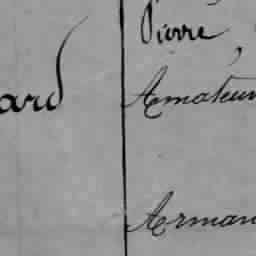 Pierre,
ard Amateur
Arman